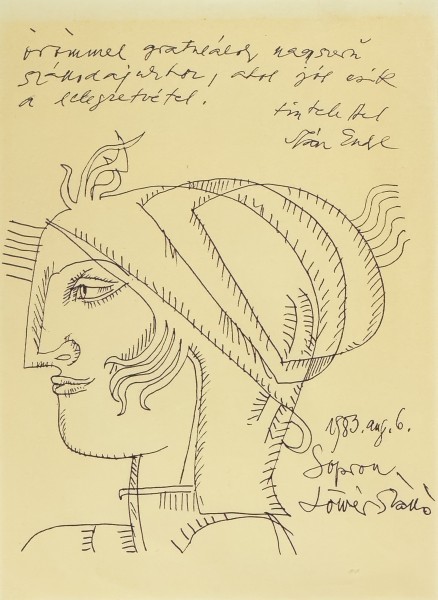 örömmel gratulálok nagyszerű
szállodájukhoz, ahol jól esik
a lélegzetvétel.
tisztelettel
Szász Endre
1983. aug. 6.
Sopron,
Lövér Szálló